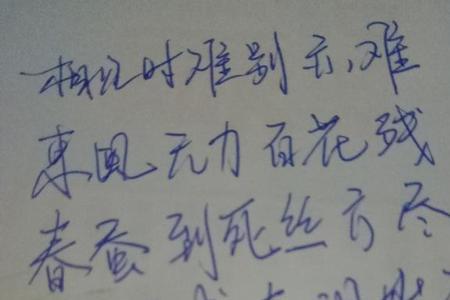 相见时难别亦难
東風无力百花残
春蚕到死丝方尽